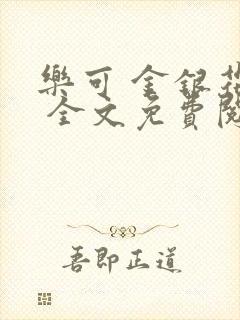 樂可 金銀花
全文免費閱
吾即正道